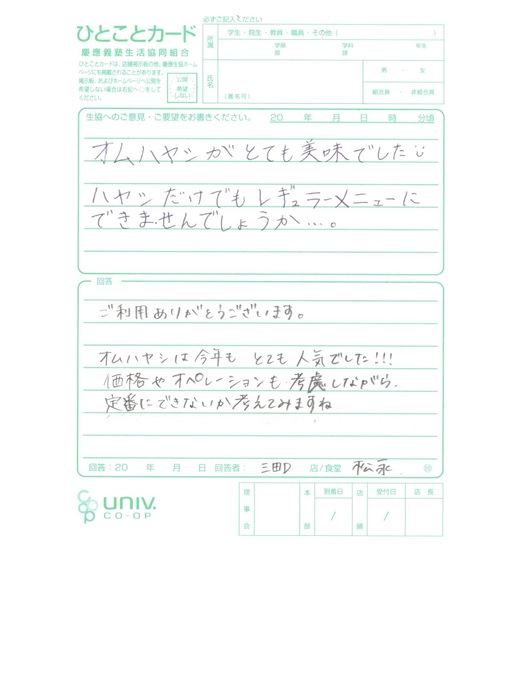 ひとことカード
慶應義塾生活協同組合
ひとことカードは、店舗掲示板の他、慶應生協ホームページにも掲載されることがあります。
掲示板、およびホームページへ公開を希望しない場合は右記へ○をしてください。
公開希望しない
必ずご記入ください
所属
学生・院生・教員・職員・その他（　　　）
学部　学科　年生
氏名
（匿名可）
男 ・ 女
組合員 ・ 非組合員
生協へのご意見・ご要望をお書きください。 20　年　月　日　時　分頃
オムハヤシがとても美味でした
ハヤシだけでもレギュラーメニューに
できませんでしょうか…。
回答
ご利用ありがとうございます。
オムハヤシは今年も とても人気でした!!!
価格やオペレーションも考慮しながら、
定番にできないか考えてみますね
回答：20　年　月　日 回答者： 三田D 店／食堂 松永 ㊞
Co-op UNIV.
CO-OP
理事会 本部 到着日 店舗 受付日 店長
/ /